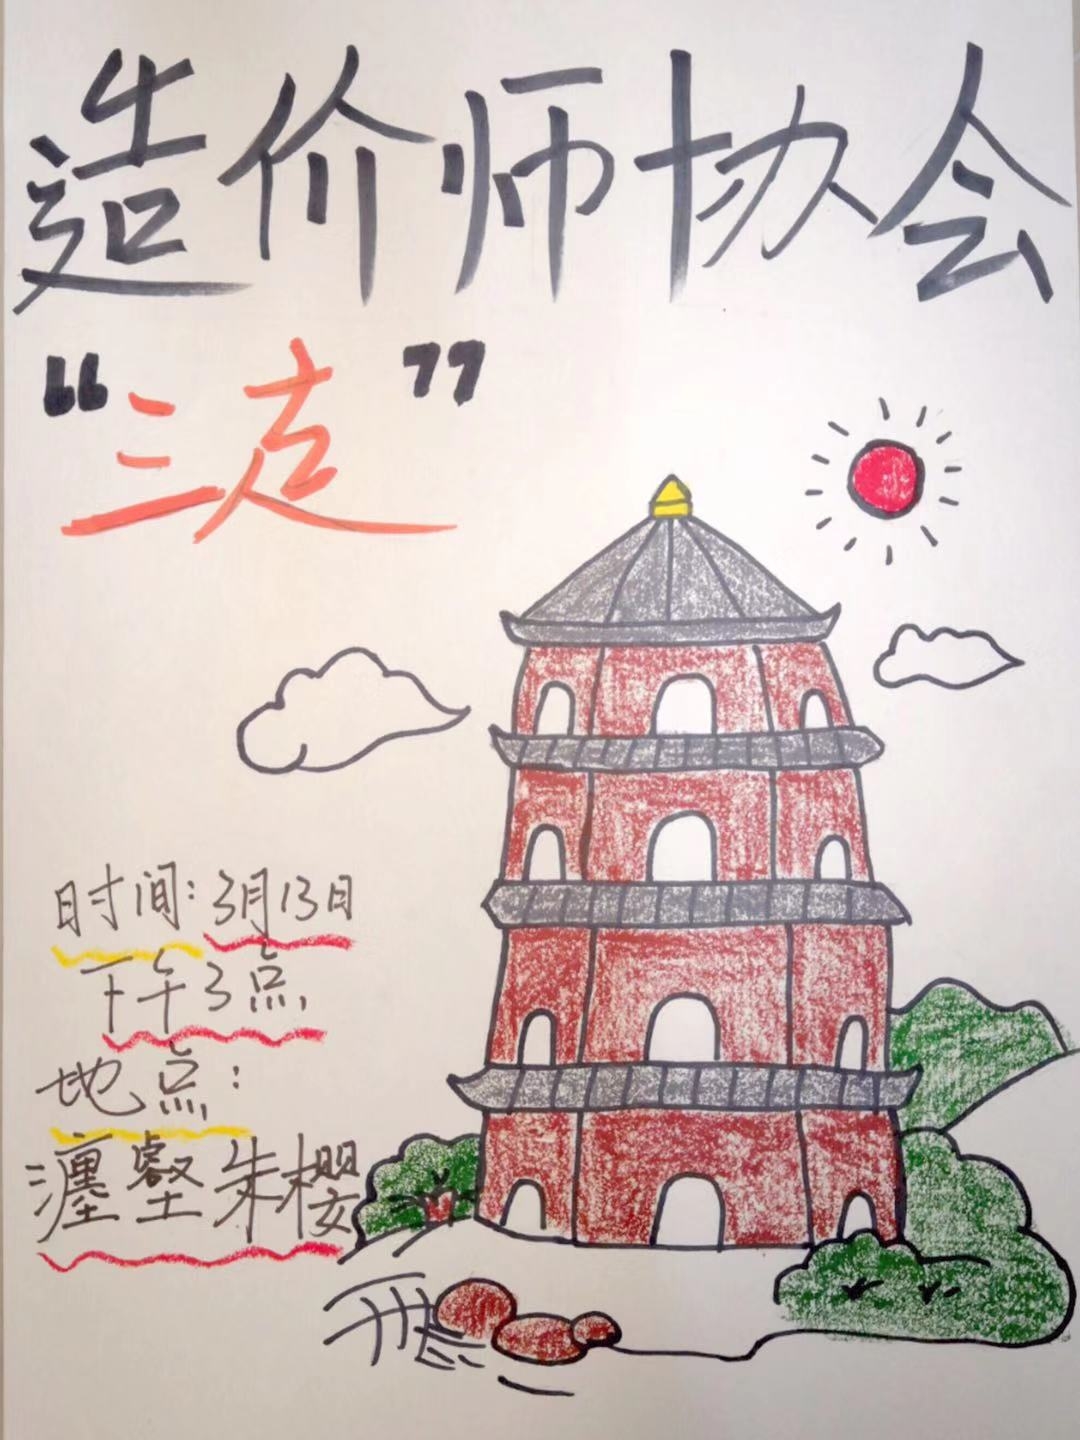 造价师协会
“三走”
时间：3月13日
下午3点
地点：
瀍壑朱樱